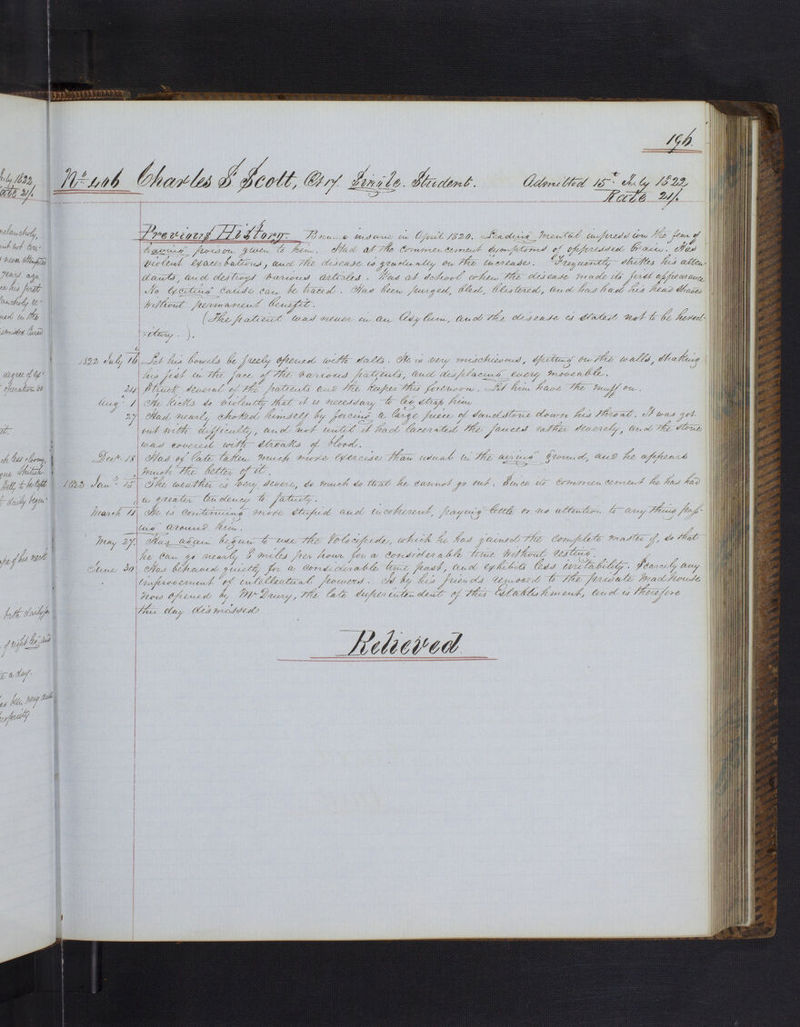 196
No 406 Charles F Scott, Æt 17 Single. Student. Admitted 15th July 1822
Rate 21/.
Previous History. Became insane in April 1820. Leading mental impression the fear of
having poison given to him. Had at the commencement symptoms of oppressed brain. Has
violent exacerbations, and the disease is gradually on the increase. Frequently strikes his atten-
dants, and destroys various articles. Was at school when the disease made its first appearance
No exciting cause can be traced. Has been purged, bled, blistered, and has had his head shaved
without permanent benefit.
(The patient was never in an Asylum, and the disease is stated not to be heredi-
tary.).
1822 July 16 Let his bowels be freely opened with salts. He is very mischievous, spitting on the walls, shaking
his fist in the face of the various patients, and displacing every moveable.
24 Struck several of the patients and the keeper this forenoon. Let him have the muff on.
Augt 1 He kicks so violently that it is necessary to leg strap him
27 Had nearly choked himself by forcing a large piece of sandstone down his throat. It was got
out with difficulty, and not until it had lacerated the fauces rather severely, and the stone
was covered with streaks of blood.
Decr 18 Has of late taken much more exercise than usual in the airing ground, and he appears
much the better of it.
1823 Jany 15 The weather is very severe, so much so that he cannot go out. Since its commencement he has had
a greater tendency to fatuity.
March 11 He is continuing more stupid and incoherent, paying little or no attention to any thing pass-
ing around him.
May 27 Has again begun to use the Velocipede, which he has gained the complete master of, so that
he can go nearly 8 miles per hour for a considerable time without resting.
June 30 Has behaved quietly for a considerable time past, and exhibits less irritability. Scarcely any
improvement of intellectual powers. Is by his friends removed to the private Madhouse
now opened by Mr Drury, the late superintendent of this Establishment, and is therefore
this day dismissed
Relieved